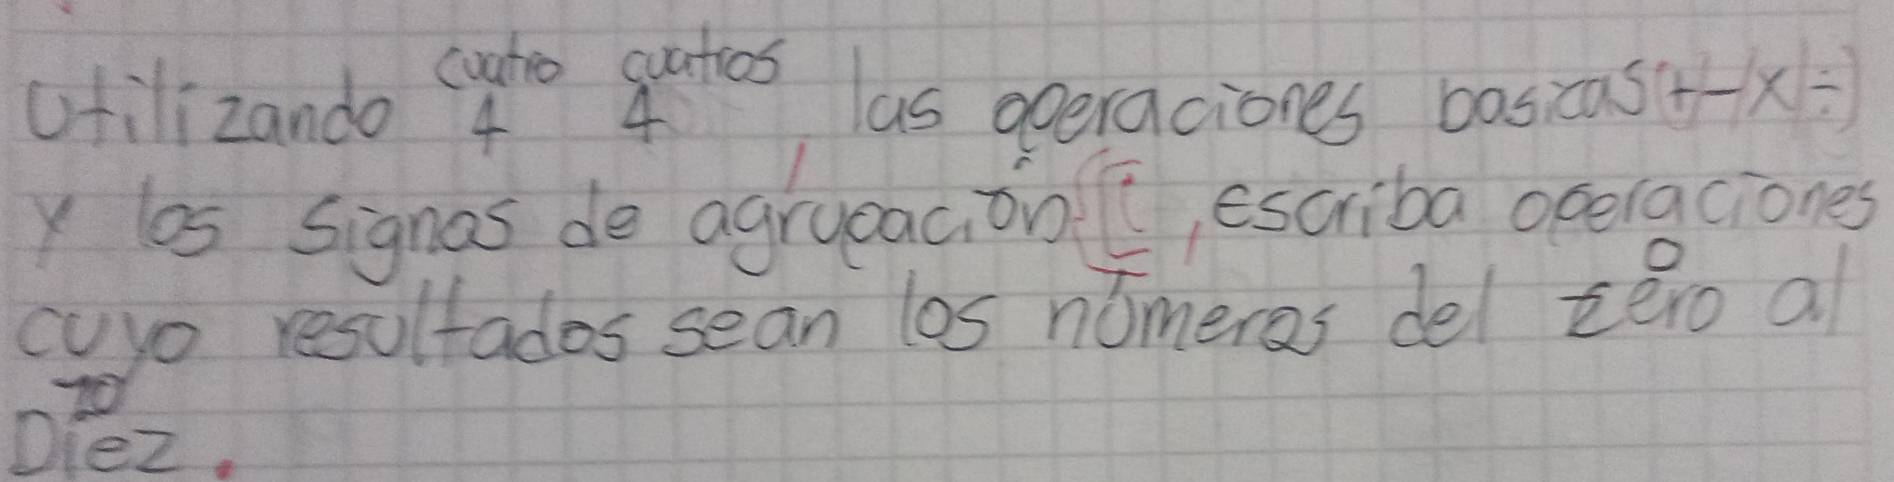 cuatro cuatros
Utilizando 4 4, las operaciones basicas (+-×÷)
y los signos de agrupación, escriba operaciones
0
cuyo resultados sean los números del zero al
10
Diez.